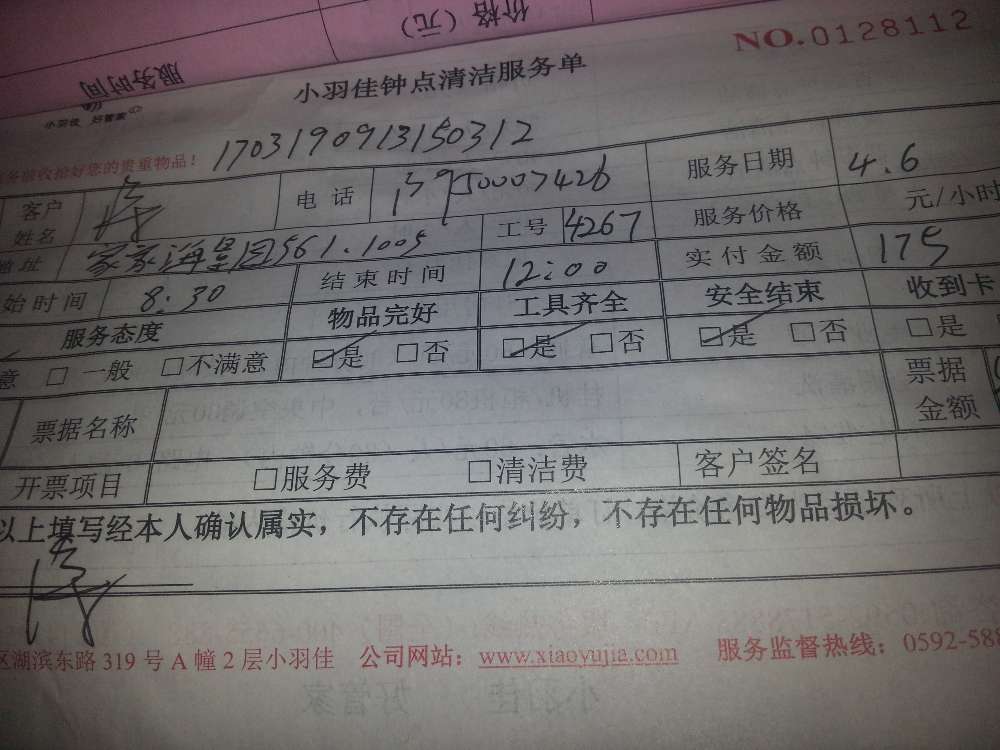 价格（元）
服务时间
NO.0128112
小羽佳钟点清洁服务单
小羽佳 好管家
170319091315031​2
您的贵重物品！
客户姓名 电话 服务日期 4.6
地址 工号 4267 服务价格 元/小时
始时间 8:30 结束时间 12:00 实付金额 175
服务态度 物品完好 工具齐全 安全结束 收到卡
意 □ 一般 □不满意 ☑是 □否 ☑是 □否 ☑是 □否 □是
票据名称 票据金额
开票项目 □服务费 □清洁费 客户签名
以上填写经本人确认属实，不存在任何纠纷，不存在任何物品损坏。
区湖滨东路 319 号 A 幢 2 层小羽佳 公司网站：www.xiaoyujia.com 服务监督热线：0592-588
小羽佳 好管家